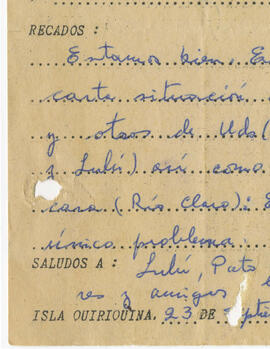 RECADOS :
Estamos bien. En
carta situación
y otros de Uds(
y Lulú) así como
cara (Río Claro): E
único problema
SALUDOS A : Lulú, Pato
res y amigos
ISLA QUIRIQUINA, 23 DE Septie